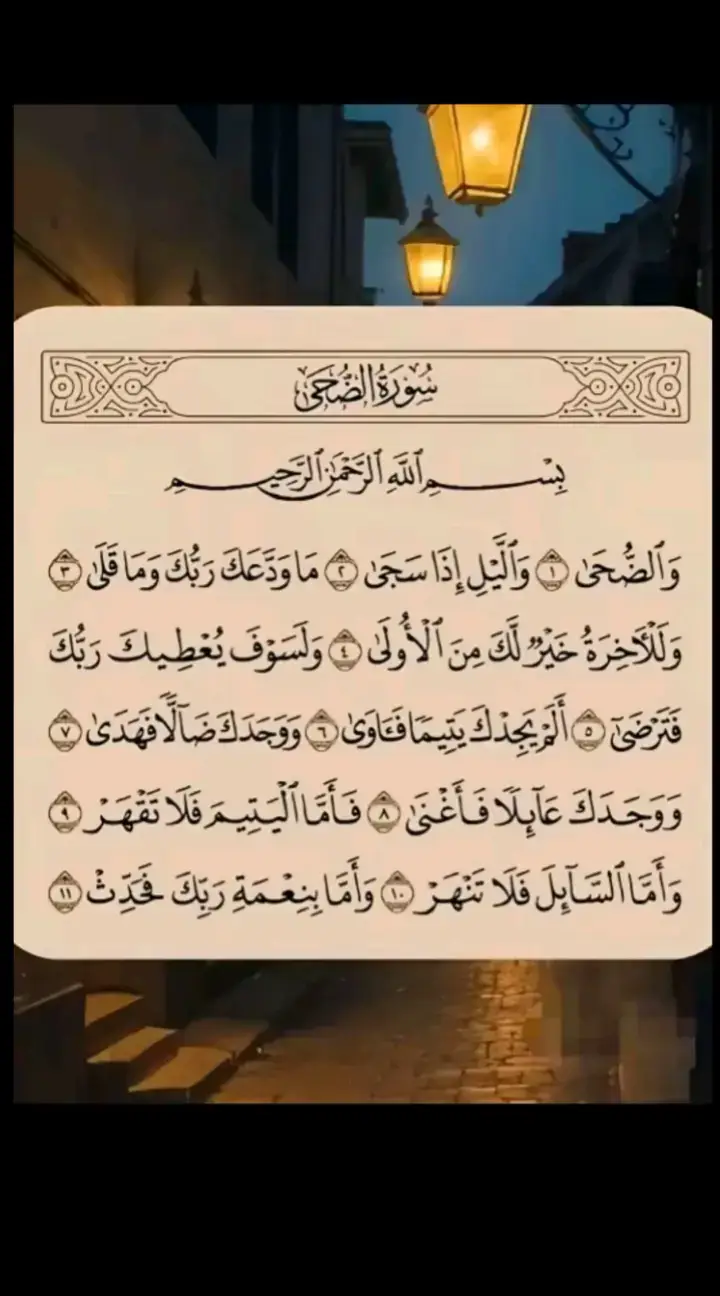 سُورَةُ الضُّحَىٰ
بِسْمِ ٱللَّهِ ٱلرَّحْمَٰنِ ٱلرَّحِيمِ
وَٱلضُّحَىٰ ١ وَٱلَّيْلِ إِذَا سَجَىٰ ٢ مَا وَدَّعَكَ رَبُّكَ وَمَا قَلَىٰ ٣
وَلَلْـَٔاخِرَةُ خَيْرٌ لَّكَ مِنَ ٱلْأُولَىٰ ٤ وَلَسَوْفَ يُعْطِيكَ رَبُّكَ
فَتَرْضَىٰٓ ٥ أَلَمْ يَجِدْكَ يَتِيمًا فَـَٔاوَىٰ ٦ وَوَجَدَكَ ضَآلًّا فَهَدَىٰ ٧
وَوَجَدَكَ عَآئِلًا فَأَغْنَىٰ ٨ فَأَمَّا ٱلْيَتِيمَ فَلَا تَقْهَرْ ٩
وَأَمَّا ٱلسَّآئِلَ فَلَا تَنْهَرْ ١٠ وَأَمَّا بِنِعْمَةِ رَبِّكَ فَحَدِّثْ ١١